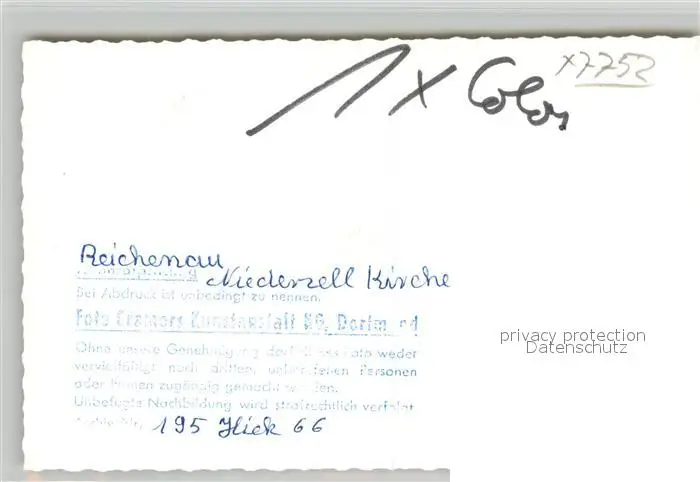 1 x Color
x7752
Reichenau
Niederzell Kirche
Bei Abdruck ist unbedingt zu nennen.
Foto Cramers Kunstanstalt KG, Dortmund
privacy protection
Datenschutz
Ohne unsere Genehmigung darf dieses Foto weder
vervielfältigt noch dritten, unberufenen Personen
oder Firmen zugängig gemacht werden.
Unbefugte Nachbildung wird strafrechtlich verfolgt
195 Hick 66